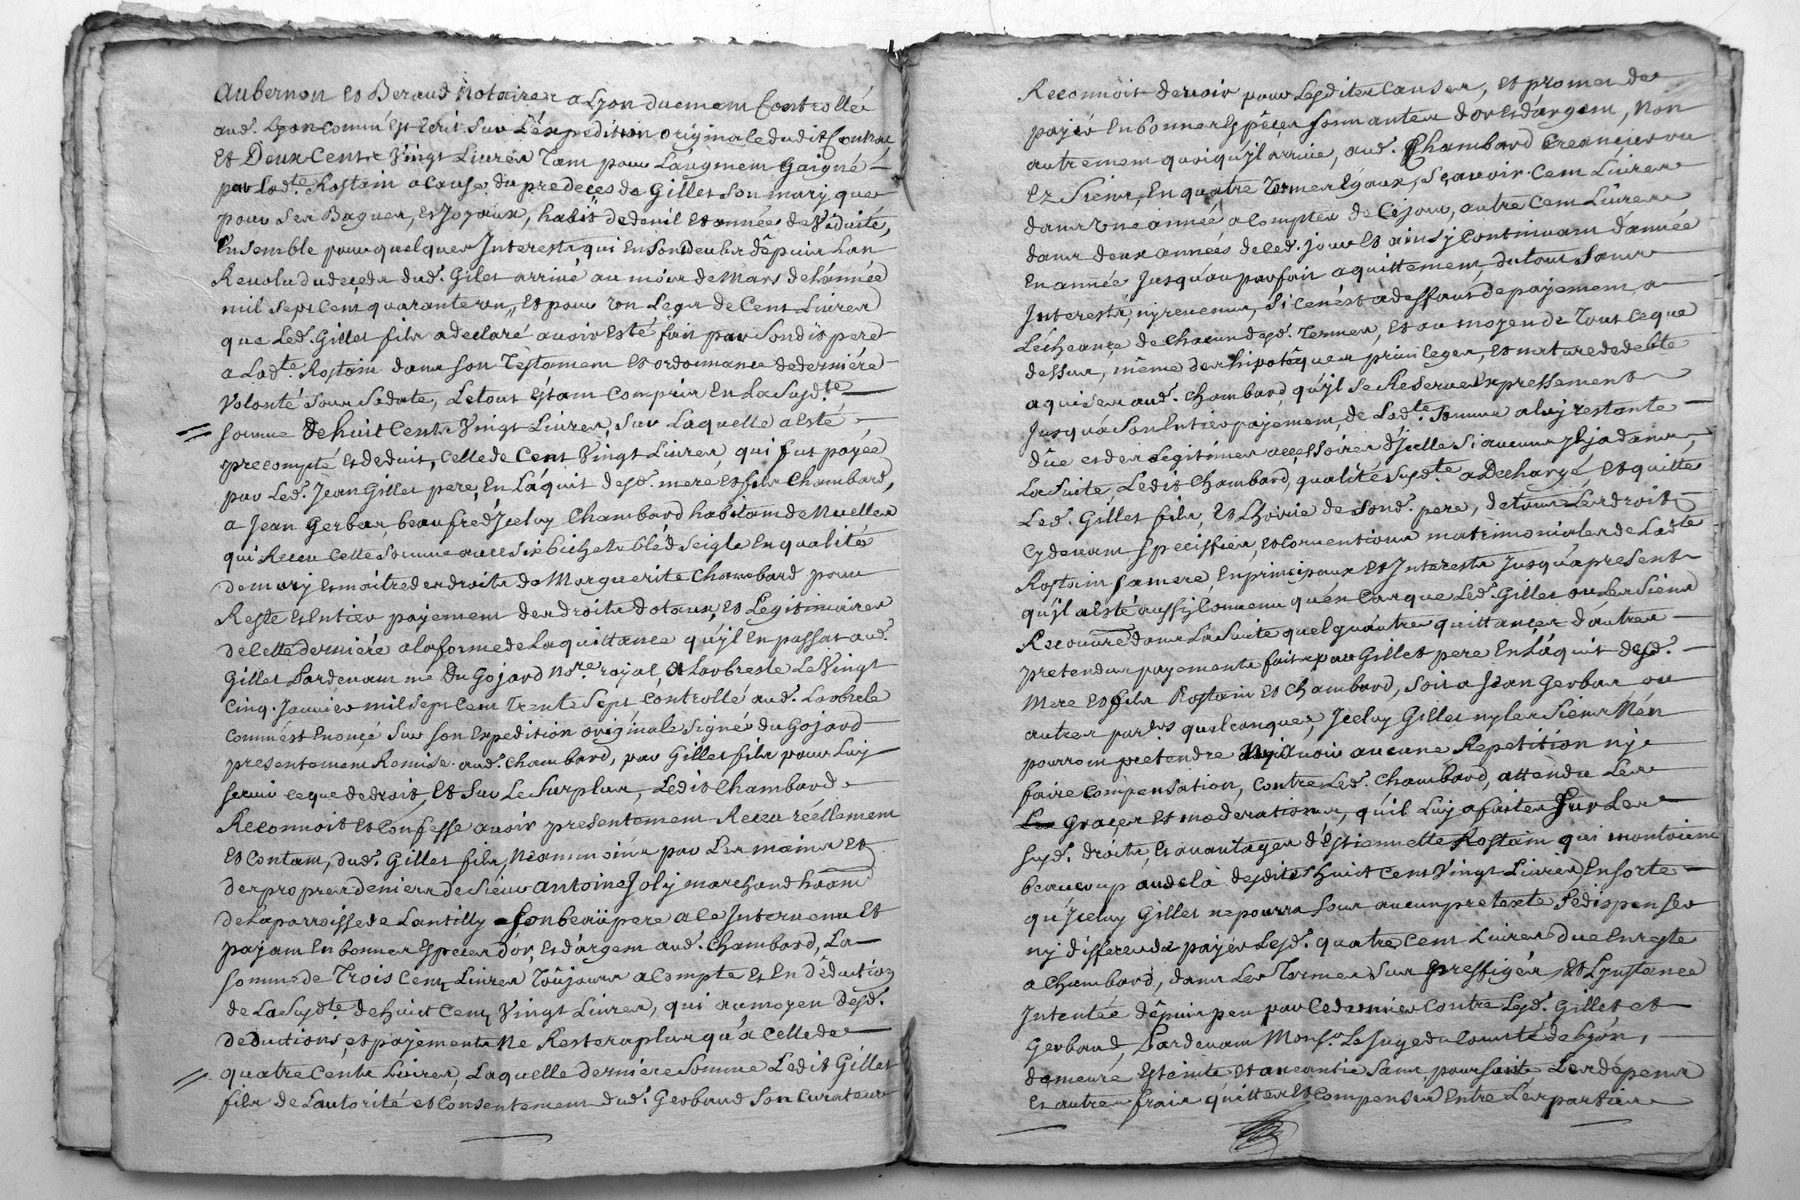 Aubernon et Beraud Notaires a Lyon duement Controllé
aud. Lyon comm'est ecrit sur l'expedition originale dudit Contrat
Et Deux Cents Vingt Livres Tant pour L'augment Gaigné
par lad.te Rostain a cause du predeces de Gillet Son mary que
pour Ses Bagues, et Joyaux, habis de deuil et année de Viduité,
Ensemble pour quelques Interests qui En Sont deubs dépuis L'an
Revolu du decéds dud. Gilet arrivé au mois de Mars de L'année
mil Sept Cent quarante un, et pour un Legs de Cent Livres
que Led. Gillet fils a declaré avoir esté fait par Sondit pere
a Lad.te Rostain dans son Testament et ordonnance de derniére
Volonté Sous Sa date, Le tout étant Compris En La Susd.te
somme de huit Cents Vingt Livres, Sur Laquelle a esté
precompté et deduit, Celle de Cent Vingt Livres, qui fut payée
par Led. Jean Gillet pere, En L'áquit desd. mere et fils Chambard,
a Jean Gerbar, beaufre d'Jceluy Chambard habitant de Nuelles
qui Receu Cette Somme avec six bichets bléd Seigle En qualité
de mary et maître des droits de Marguerite Chambard pour
Reste et Entier payement des droits dotaux, et Legitimaires
de Cette derniére a la forme de La quittance qu'jl En passat aud.
Gillet Pardevant me Du Gojard No.re royal, a Larbresle Le Vingt
Cinq Janvier mil Sept Cent Trente Sept Controllé aud. Larbrele
comm'est Enoncé Sur Son Expedition originale Signé du Gojard
presentement Remise aud. Chambard, par Gillet fils pour Luy
servir ce que de droit, Et Sur Le Surplus, Ledit Chambard
Reconnoit et Confesse avoir presentement Receu réellement
Et Contant, dud. Gillet fils, Neanmoins par Les mains et
des propres deniers de Sieur Antoine Joly marchand
de La parroisse de Lantilly Son beaüpere a ce Intervenu Et
payant En bonnes Especes d'or, et d'argent aud. Chambard, La
somme de Trois Cents Livres Toûjours a Compte et En Déduction
de La Susd.te de huit Cents Vingt Livres, qui au moyen desd.
deductions, et payements Ne Restera plus qu'a Celle de
quatre Cents Livres, Laquelle derniere Somme Ledit Gillet
fils de L'autorité et Consentement dud. Gerbaud Son Curateur
Reconnoit devoir pour Lesdites Causes, et promet de
payer En bonnes Espéces Sonnantes d'or et d'argent, Non
autrement quoiqu'jl arrive, aud. Chambard Creancier ou
Ez Siens, En quatre Termes Egaux, Sçavoir Cent Livres
dans Une année a Compter de Céjour, autre Cent Livres
dans deux années de Ced. jour Et ainsy Continuant d'année
En année Jusqu'au parfait aquittement, du tout Sans
Interests, ny revenus, Si ce n'est a deffaut de payement a
L'écheance de Chacun desd. Termes, Et au moyen de Tout ce que
dessus, même des hipotéques privileges, Et nature de debte
aquises aud. Chambard, qu'jl Se Reserve Expressement
Jusqu'a Son Entier payement, de Lad.te Somme a luy restante
dûe et des Legitimes accessoires d'Jcelle Si aucuns Jl y a dans
La Suite, Ledit Chambard, qualité Susd.te a Dechargé, et quitte
Led. Gillet fils, Et L'hoirie de Sond. pere, de tous Les droits
Cy devant Specifiés, et Conventions matrimoniales de Lad.te
Rostain Sa mere En principaux Et Interests Jusqu'a present
qu'jl a Esté aussy Convenu qu'en Cas que Led. Gillet ou Les Siens
Recouvre dans La Suite quelqu'autres quittances d'autres
pretendus payements faits par Gillet pere En L'áquit desd.
Mere Et fils Rostain et Chambard, Soit a Jean Gerbar ou
autres part.rs quelconques, Jceluy Gillet ny les Siens N'en
pourront pretendre Ny avoir aucune Repetition ny
faire Compensation, Contre Led. Chambard, attendu Les
Graces Et moderations, qu'il Luy a faites Sur Les
susd. droits, Et avantages d'Estiennette Rostain qui montoient
beaucoup audela desdites huit Cents Vingt Livres En Sorte
qu'Jceluy Gillet Ne pourra Sous aucun pretexte Se dispenser
ny differer de payer Lesd. quatre Cent Livres due En reste
a Chambard, dans Les Termes Sus Preffigés Et L'ynstance
Intentée dépuis peu par Ce dernier Contre Lesd. Gillet et
Gerbaud, Pardevant Mons.r Le Juge du Comté de Lyon,
demeure Esteinte et aneantie Sans poursuite Les dépens
Et autres frais quittes Et Compensés Entre Les parties